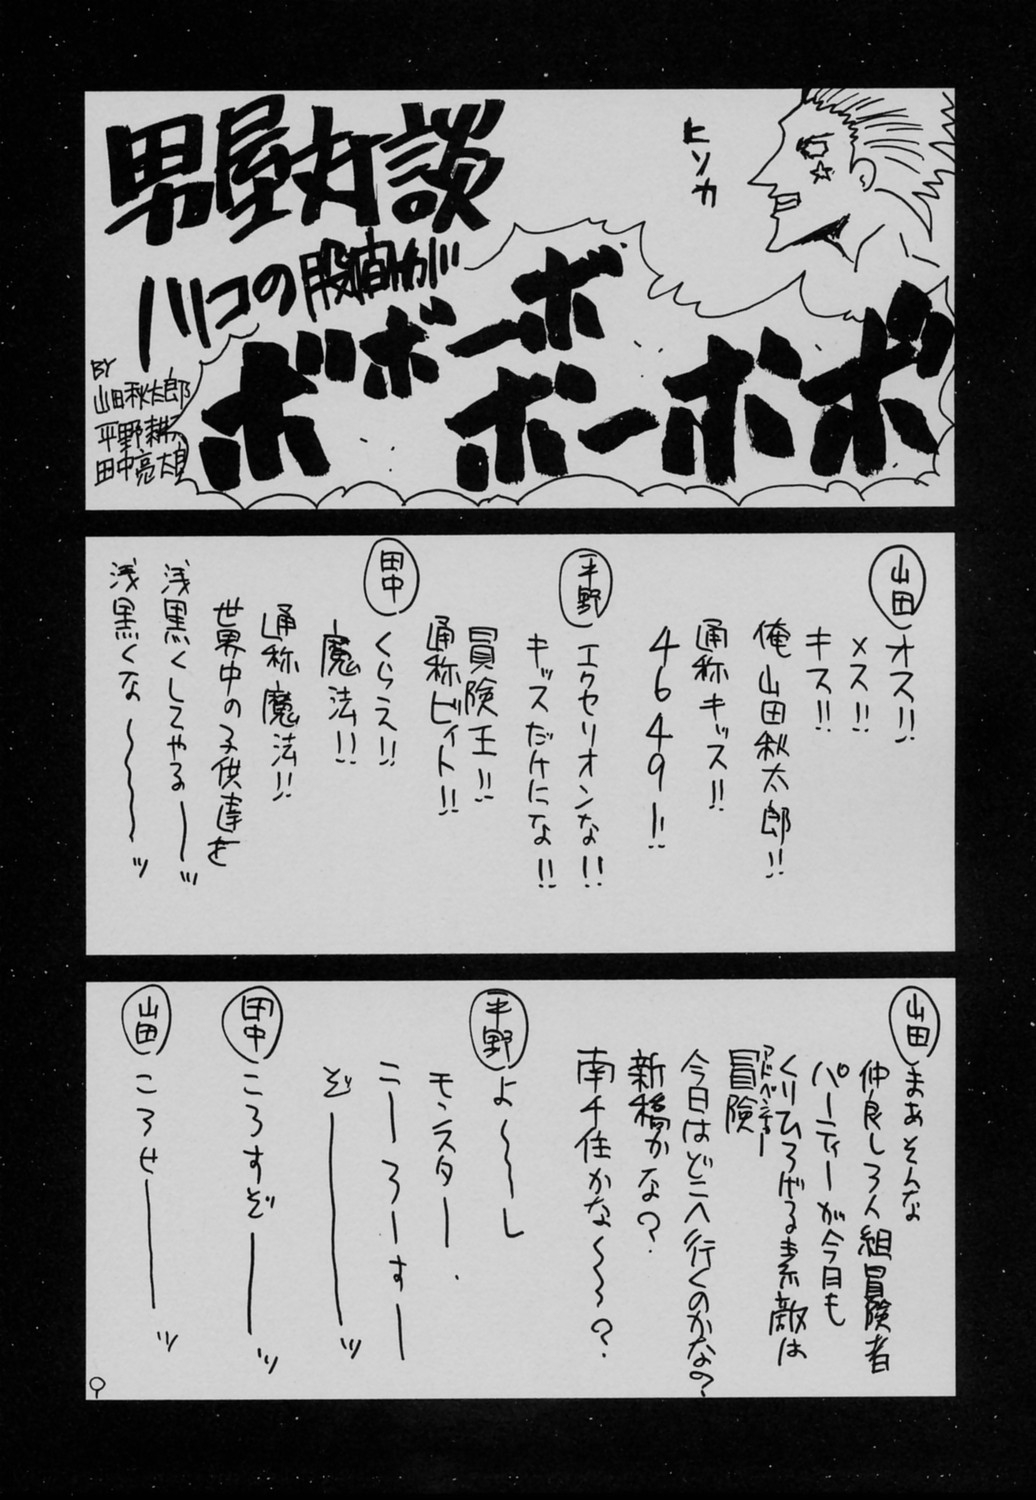 男屋対談
ノリコの股間が
ボボーボ
ボーボボ
ヒソカ
BY
山田秋太郎
平野耕太
田中亮太郎
山田
オス!!
メス!!
キス!!
俺山田秋太郎!!
通称キッス!!
4649ー!!
平野
エクセリオンな!!
キッスだけにな!!
冒険王!!
通称ビィト!!
田中
くらえ!!
魔法!!
通称魔法!!
世界中の子供達を
浅黒くしてやるー〜ッ
浅黒くな〜〜〜ッ
山田
まぁそんな
仲良し3人組冒険者
パーティーが今日も
くりひろげる素敵は
冒険
アドベンチャー
今日はどこへ行くのかな?
新稿かな?
南千住かな〜〜?
平野
よ〜〜し
モンスター
こーろーすー
ぞ―――ッ
田中
ころすぞ――ッ
山田
ころせ―――ッ